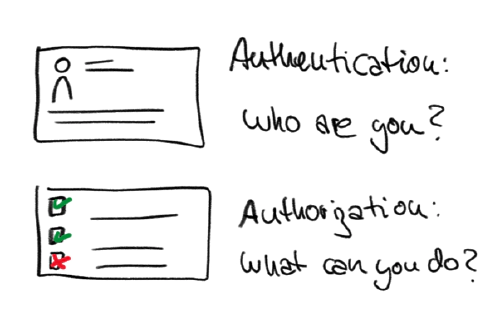 Authentication:
Who are you?
Authorization:
What can you do?